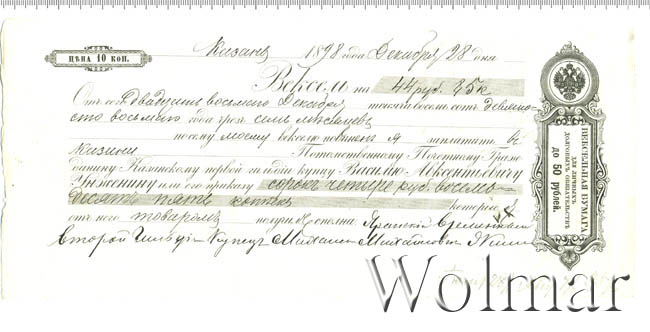 ЦѢНА 10 КОП.
Казань 1898 года Декабря 28 дня
Вексель на 44 руб. 85 к
Отъ сего Двадцать восьмаго Декабря тысяча восемь сотъ девяно-
сто восьмаго года чрезъ семь мѣсяцевъ
по сему моему векселю повиненъ я заплатить въ
Казани Потомственному Почетному Граж-
данину Казанскому первой гильдіи купцу Василью Леонтьевичу
Унженину или его приказу сорокъ четыре руб. восемь-
десятъ пять копѣекъ которые я
отъ него товаромъ получилъ сполна
второй гильдіи Купецъ Михаилъ Михайловъ
ВЕКСЕЛЬНАЯ БУМАГА
ДЛЯ ЛИЧНЫХЪ
ДОЛГОВЫХЪ ОБЯЗАТЕЛЬСТВЪ
ДО 50 РУБЛЕЙ.
Wolmar